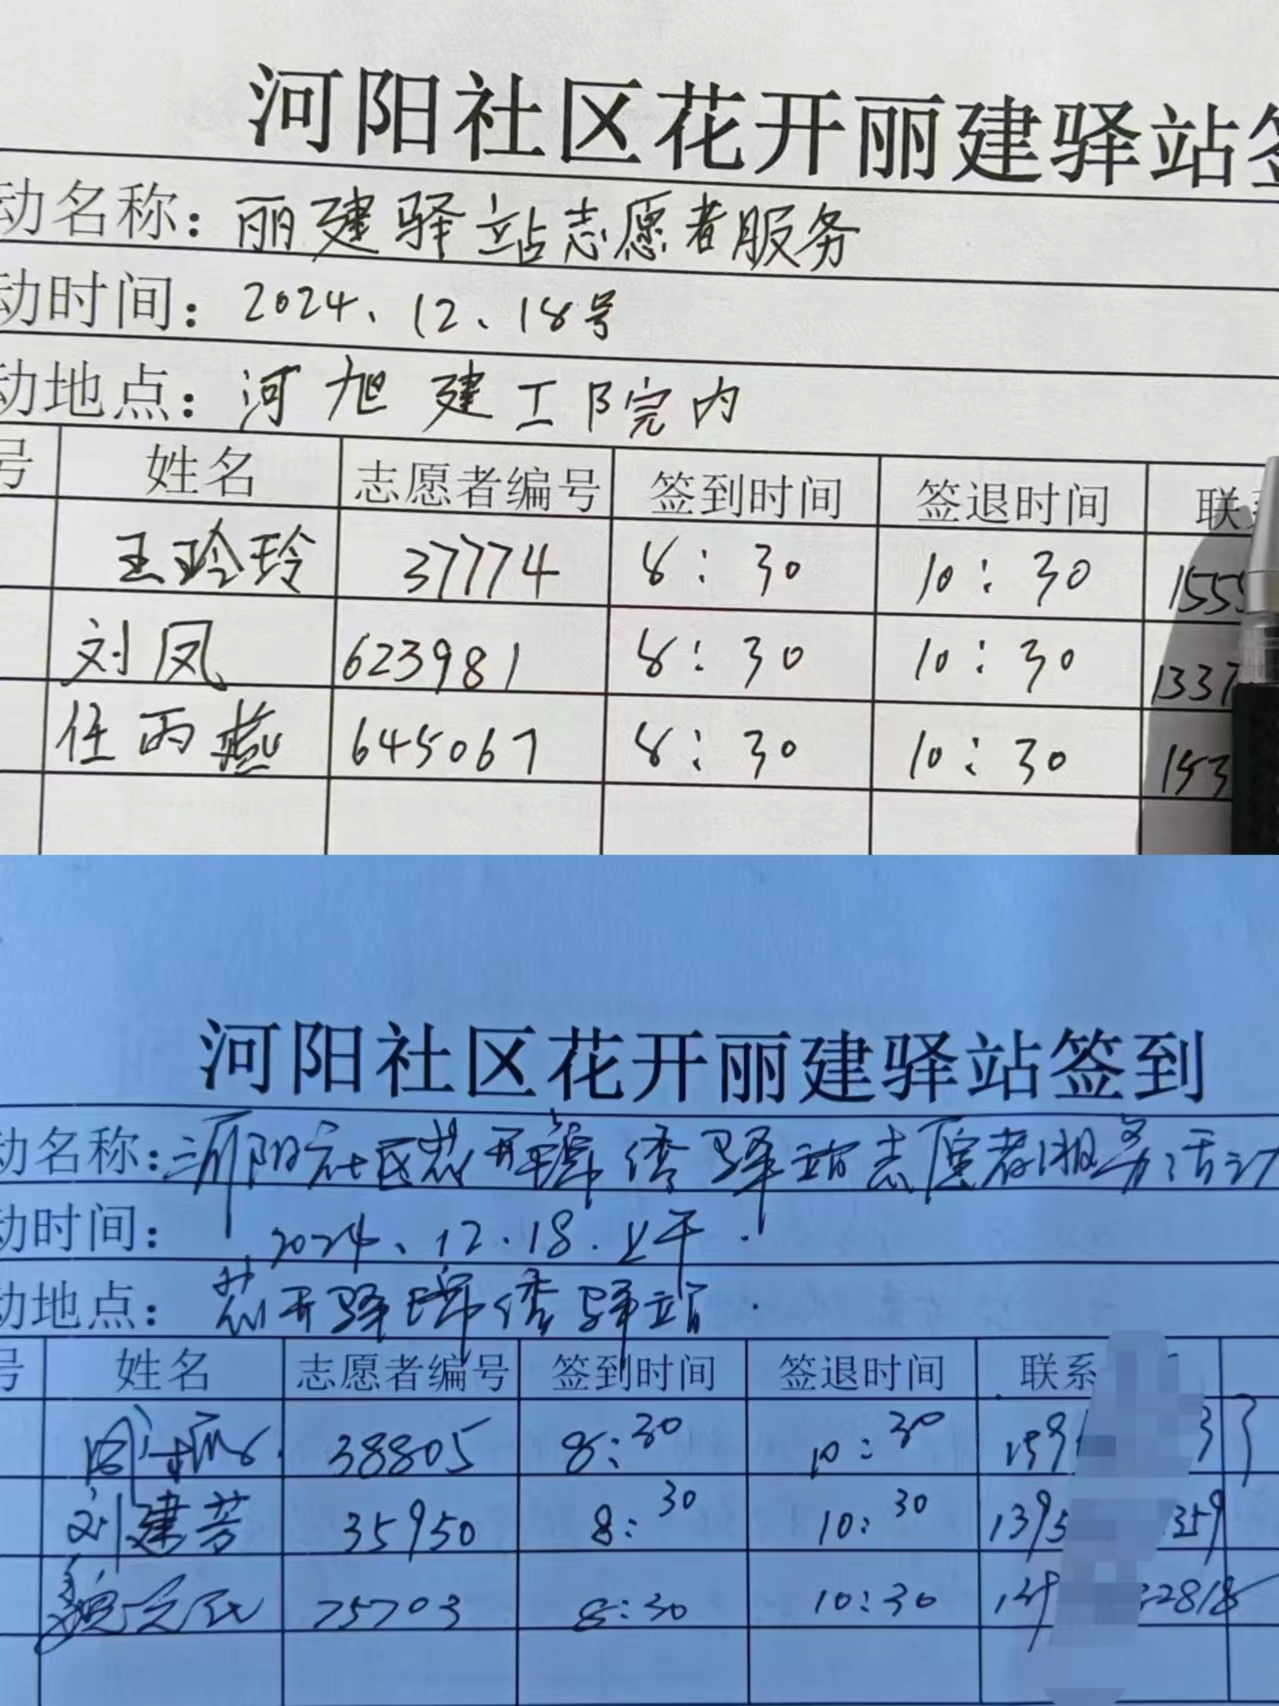 河阳社区花开丽建驿站签
动名称：丽建驿站志愿者服务
动时间：2024、12、18号
动地点：河旭建工院内
号 姓名 志愿者编号 签到时间 签退时间 联系
王玲玲 37774 8：30 10：30 1555
刘凤 623981 8：30 10：30 1337
任雨燕 645067 8：30 10：30 153
河阳社区花开丽建驿站签到
动名称：河阳社区花开锦绣驿站志愿者服务活动
动时间：2024、12.18.上午.
动地点：花开驿锦绣驿站.
号 姓名 志愿者编号 签到时间 签退时间 联系
38805 8:30 10:30 159 37
刘建芳 35950 8:30 10:30 1395 359
魏 75703 8:30 10:30 22818